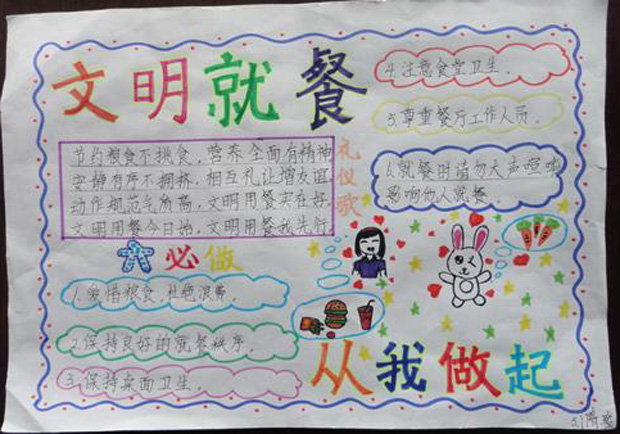 文明就餐
节约粮食不挑食，营养全面有精神
安静有序不拥挤，相互礼让增友谊
动作规范气质高，文明用餐实在好，
文明用餐今日始，文明用餐我先行
礼仪歌
必做
1.爱惜粮食，杜绝浪费。
2.保持良好的就餐秩序。
3.保持桌面卫生。
4.注意食堂卫生。
5.尊重餐厅工作人员。
6.就餐时请勿大声喧哗
影响他人就餐。
从我做起